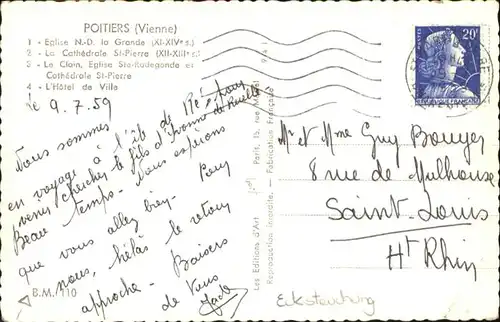 POITIERS (Vienne)
1 - Eglise N.-D. la Grande (XI-XIVe s.)
2 - La Cathédrale St-Pierre (XII-XIIIe s.)
3 - Le Clain, Eglise Ste-Radegonde et
Cathédrale St-Pierre
4 - L'Hôtel de Ville
Le 9.7.59
Nous sommes
en voyage à l'île de Ré, pour
venir chercher le fils d'Yvonne de
Beau temps - Nous espérons
que vous allez bien. Pour
nous, hélas le retour
approche - Baisers
de Vous
B.M./110
Les Editions d'Art Paris, 15, rue
Reproduction Interdite - Fabrication Française
20F
POSTES
REPUBLIQUE FRANÇAISE
Mr et Mme Guy Bouyer
8 rue de Mulhouse
Saint-Louis
Ht Rhin